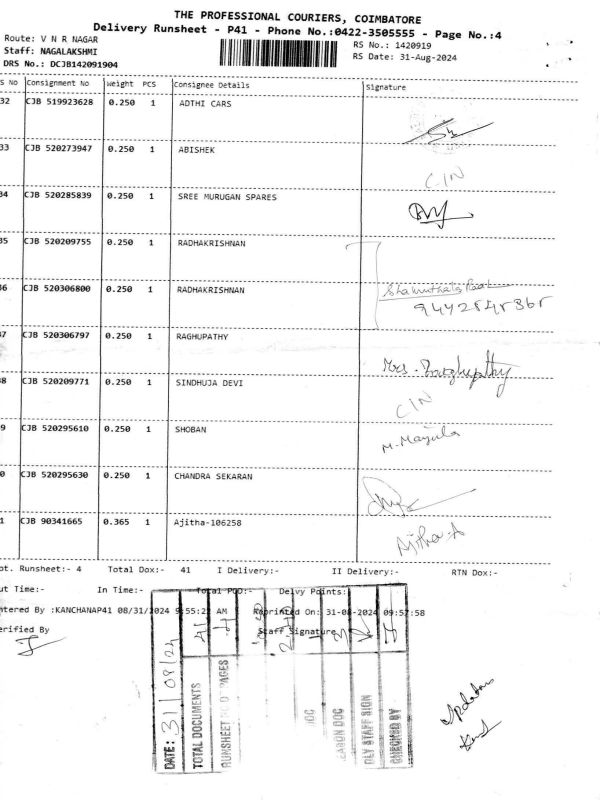 THE PROFESSIONAL COURIERS, COIMBATORE
Delivery Runsheet - P41 - Phone No.:0422-3505555 - Page No.:4
Route: V N R NAGAR
RS No.: 1420919
Staff: NAGALAKSHMI
RS Date: 31-Aug-2024
DRS No.: DCJB142091904
S No Consignment No Weight PCS Consignee Details Signature
32 CJB 519923628 0.250 1 ADTHI CARS
33 CJB 520273947 0.250 1 ABISHEK
C/N
34 CJB 520285839 0.250 1 SREE MURUGAN SPARES
35 CJB 520209755 0.250 1 RADHAKRISHNAN
36 CJB 520306800 0.250 1 RADHAKRISHNAN
37 CJB 520306797 0.250 1 RAGHUPATHY
Mrs. Raghupathy
38 CJB 520209771 0.250 1 SINDHUJA DEVI
C/N
39 CJB 520295610 0.250 1 SHOBAN
M. Manjula
0 CJB 520295630 0.250 1 CHANDRA SEKARAN
1 CJB 90341665 0.365 1 Ajitha-106258
Ajitha.A
ot. Runsheet:- 4 Total Dox:- 41 I Delivery:- II Delivery:- RTN Dox:-
ut Time:- In Time:- Total POD:- Delvy Points:
ntered By :KANCHANAP41 08/31/2024 9:55:2 AM Reprinted On: 31-08-2024 09:57:58
erified By Staff Signature
DATE: 31/08/24
TOTAL DOCUMENTS 41
RUNSHEET NO PAGES 4
DOC
EASON DOC 3
DLY STAFF SIGN
CHECKED BY